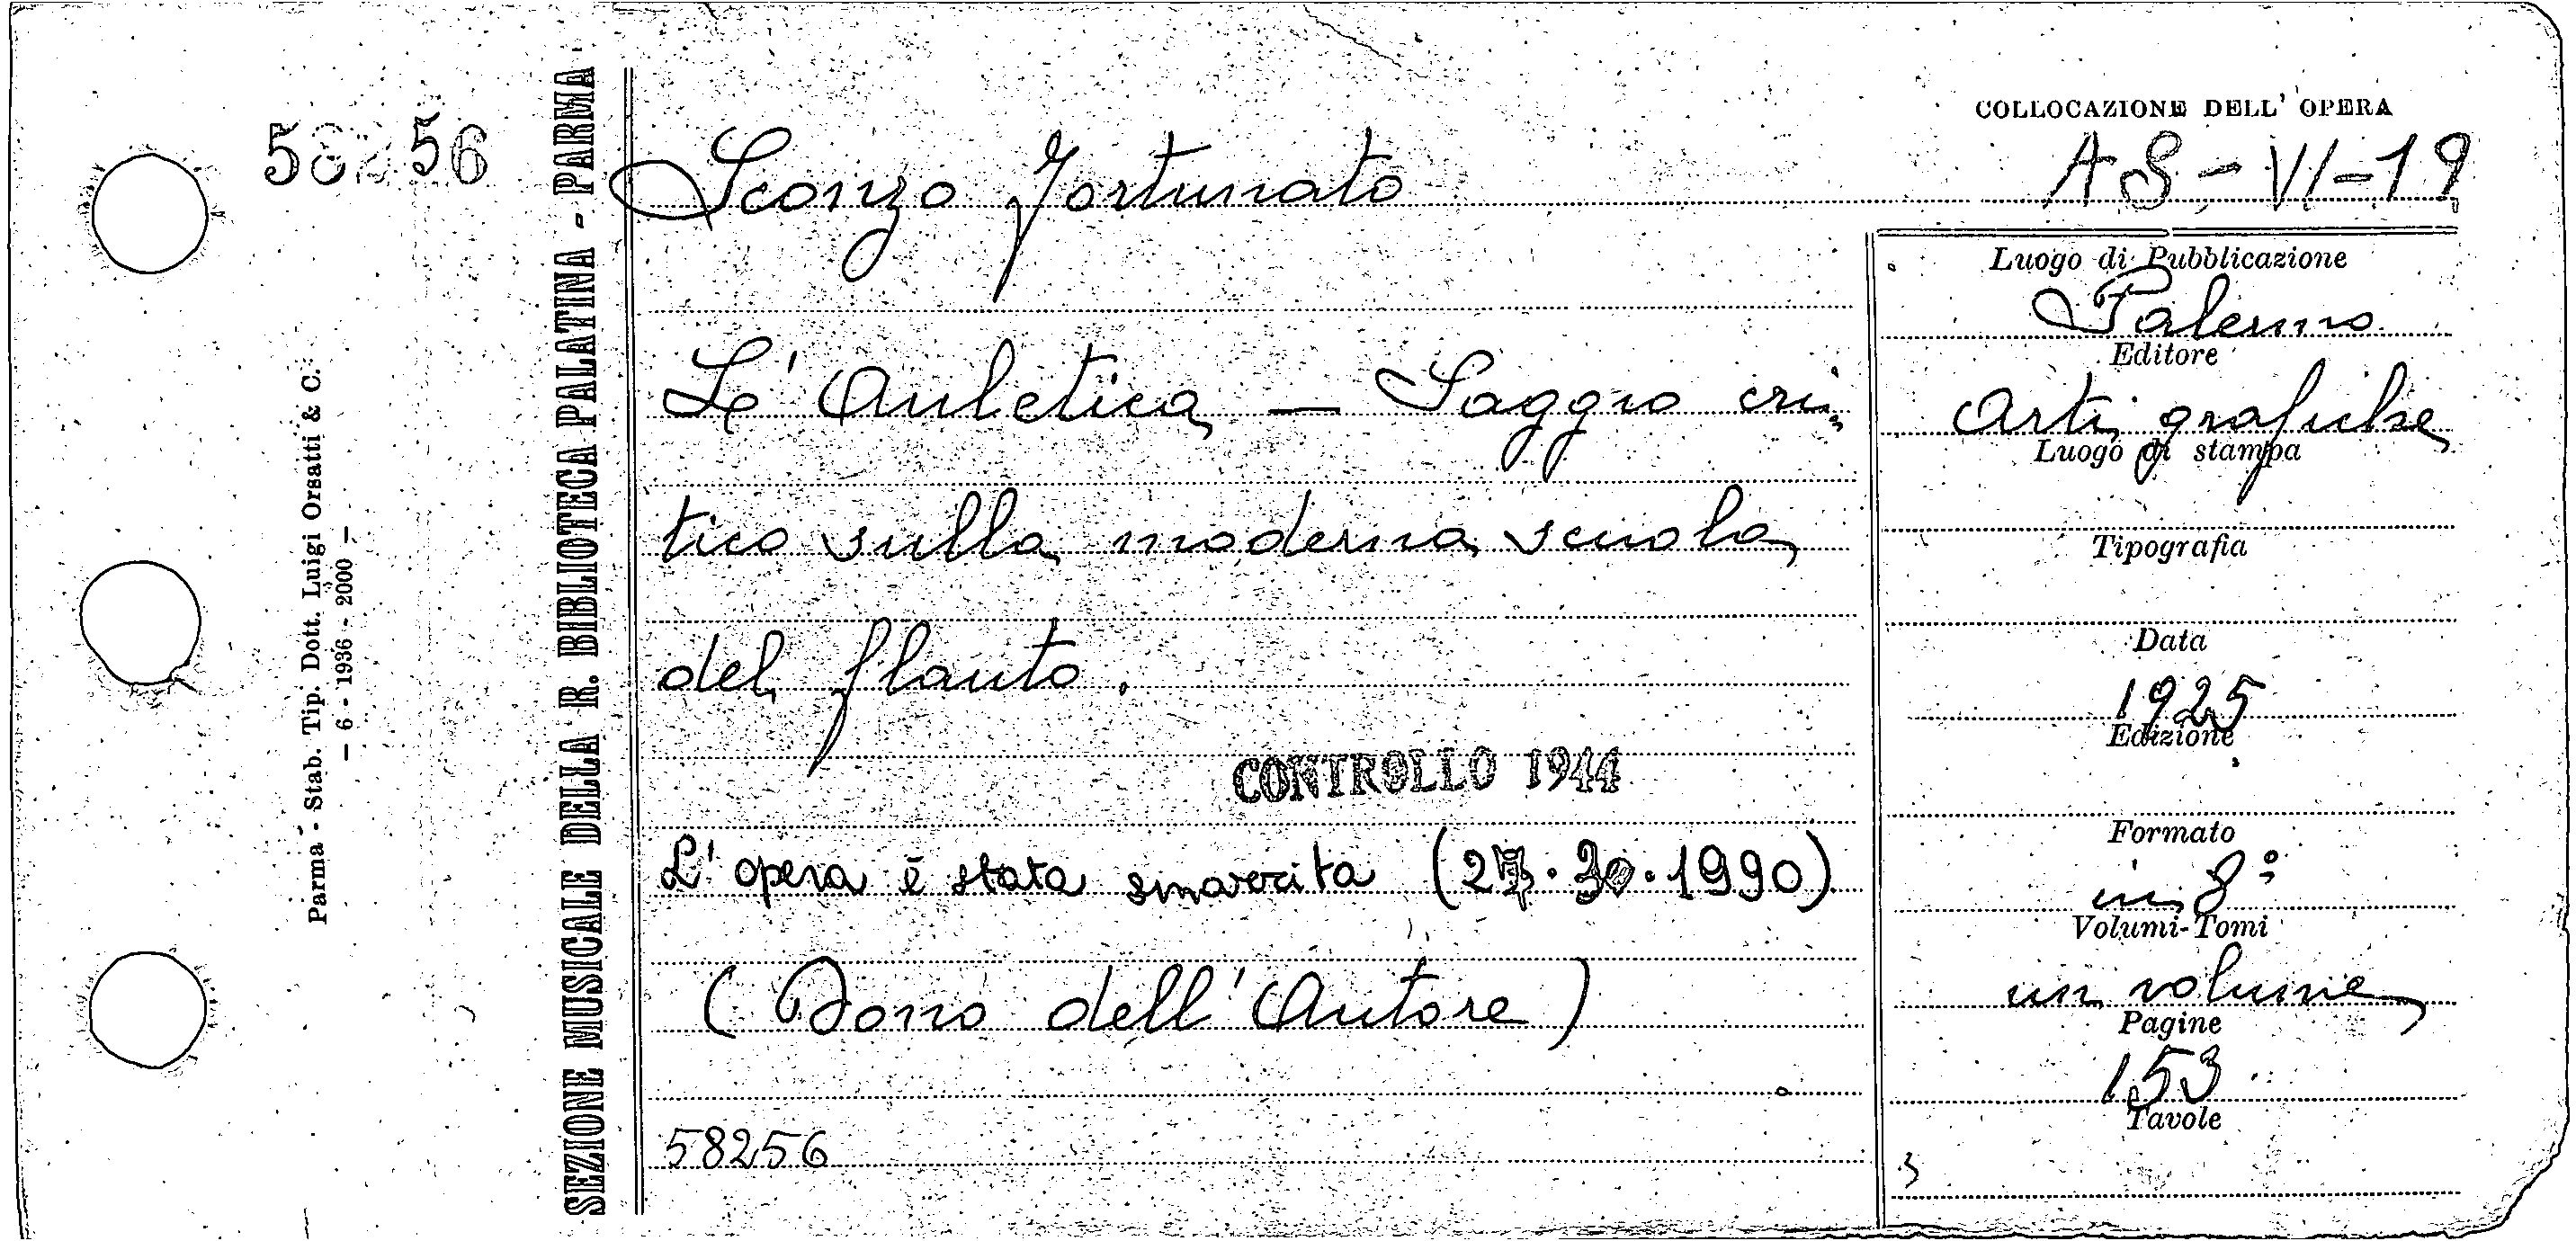 58256
Parma - Stab. Tip. Dott. Luigi Orsatti & C.
— 6 - 1936 - 2000 —
SEZIONE MUSICALE DELLA R. BIBLIOTECA PALATINA - PARMA
Sconzo Fortunato
L'Auletica — Saggio cri=
tico sulla moderna scuola
del flauto.
CONTROLLO 1944
L'opera è stata smarrita (27. .1990)
(Dono dell'Autore)
58256
COLLOCAZIONE DELL' OPERA
AS-VI-19
Luogo di Pubblicazione
Palermo
Editore
Arti grafiche
Luogo di stampa
Tipografia
Data
1925
Edizione
Formato
in 8°
Volumi-Tomi
un volume
Pagine
153
Tavole
3